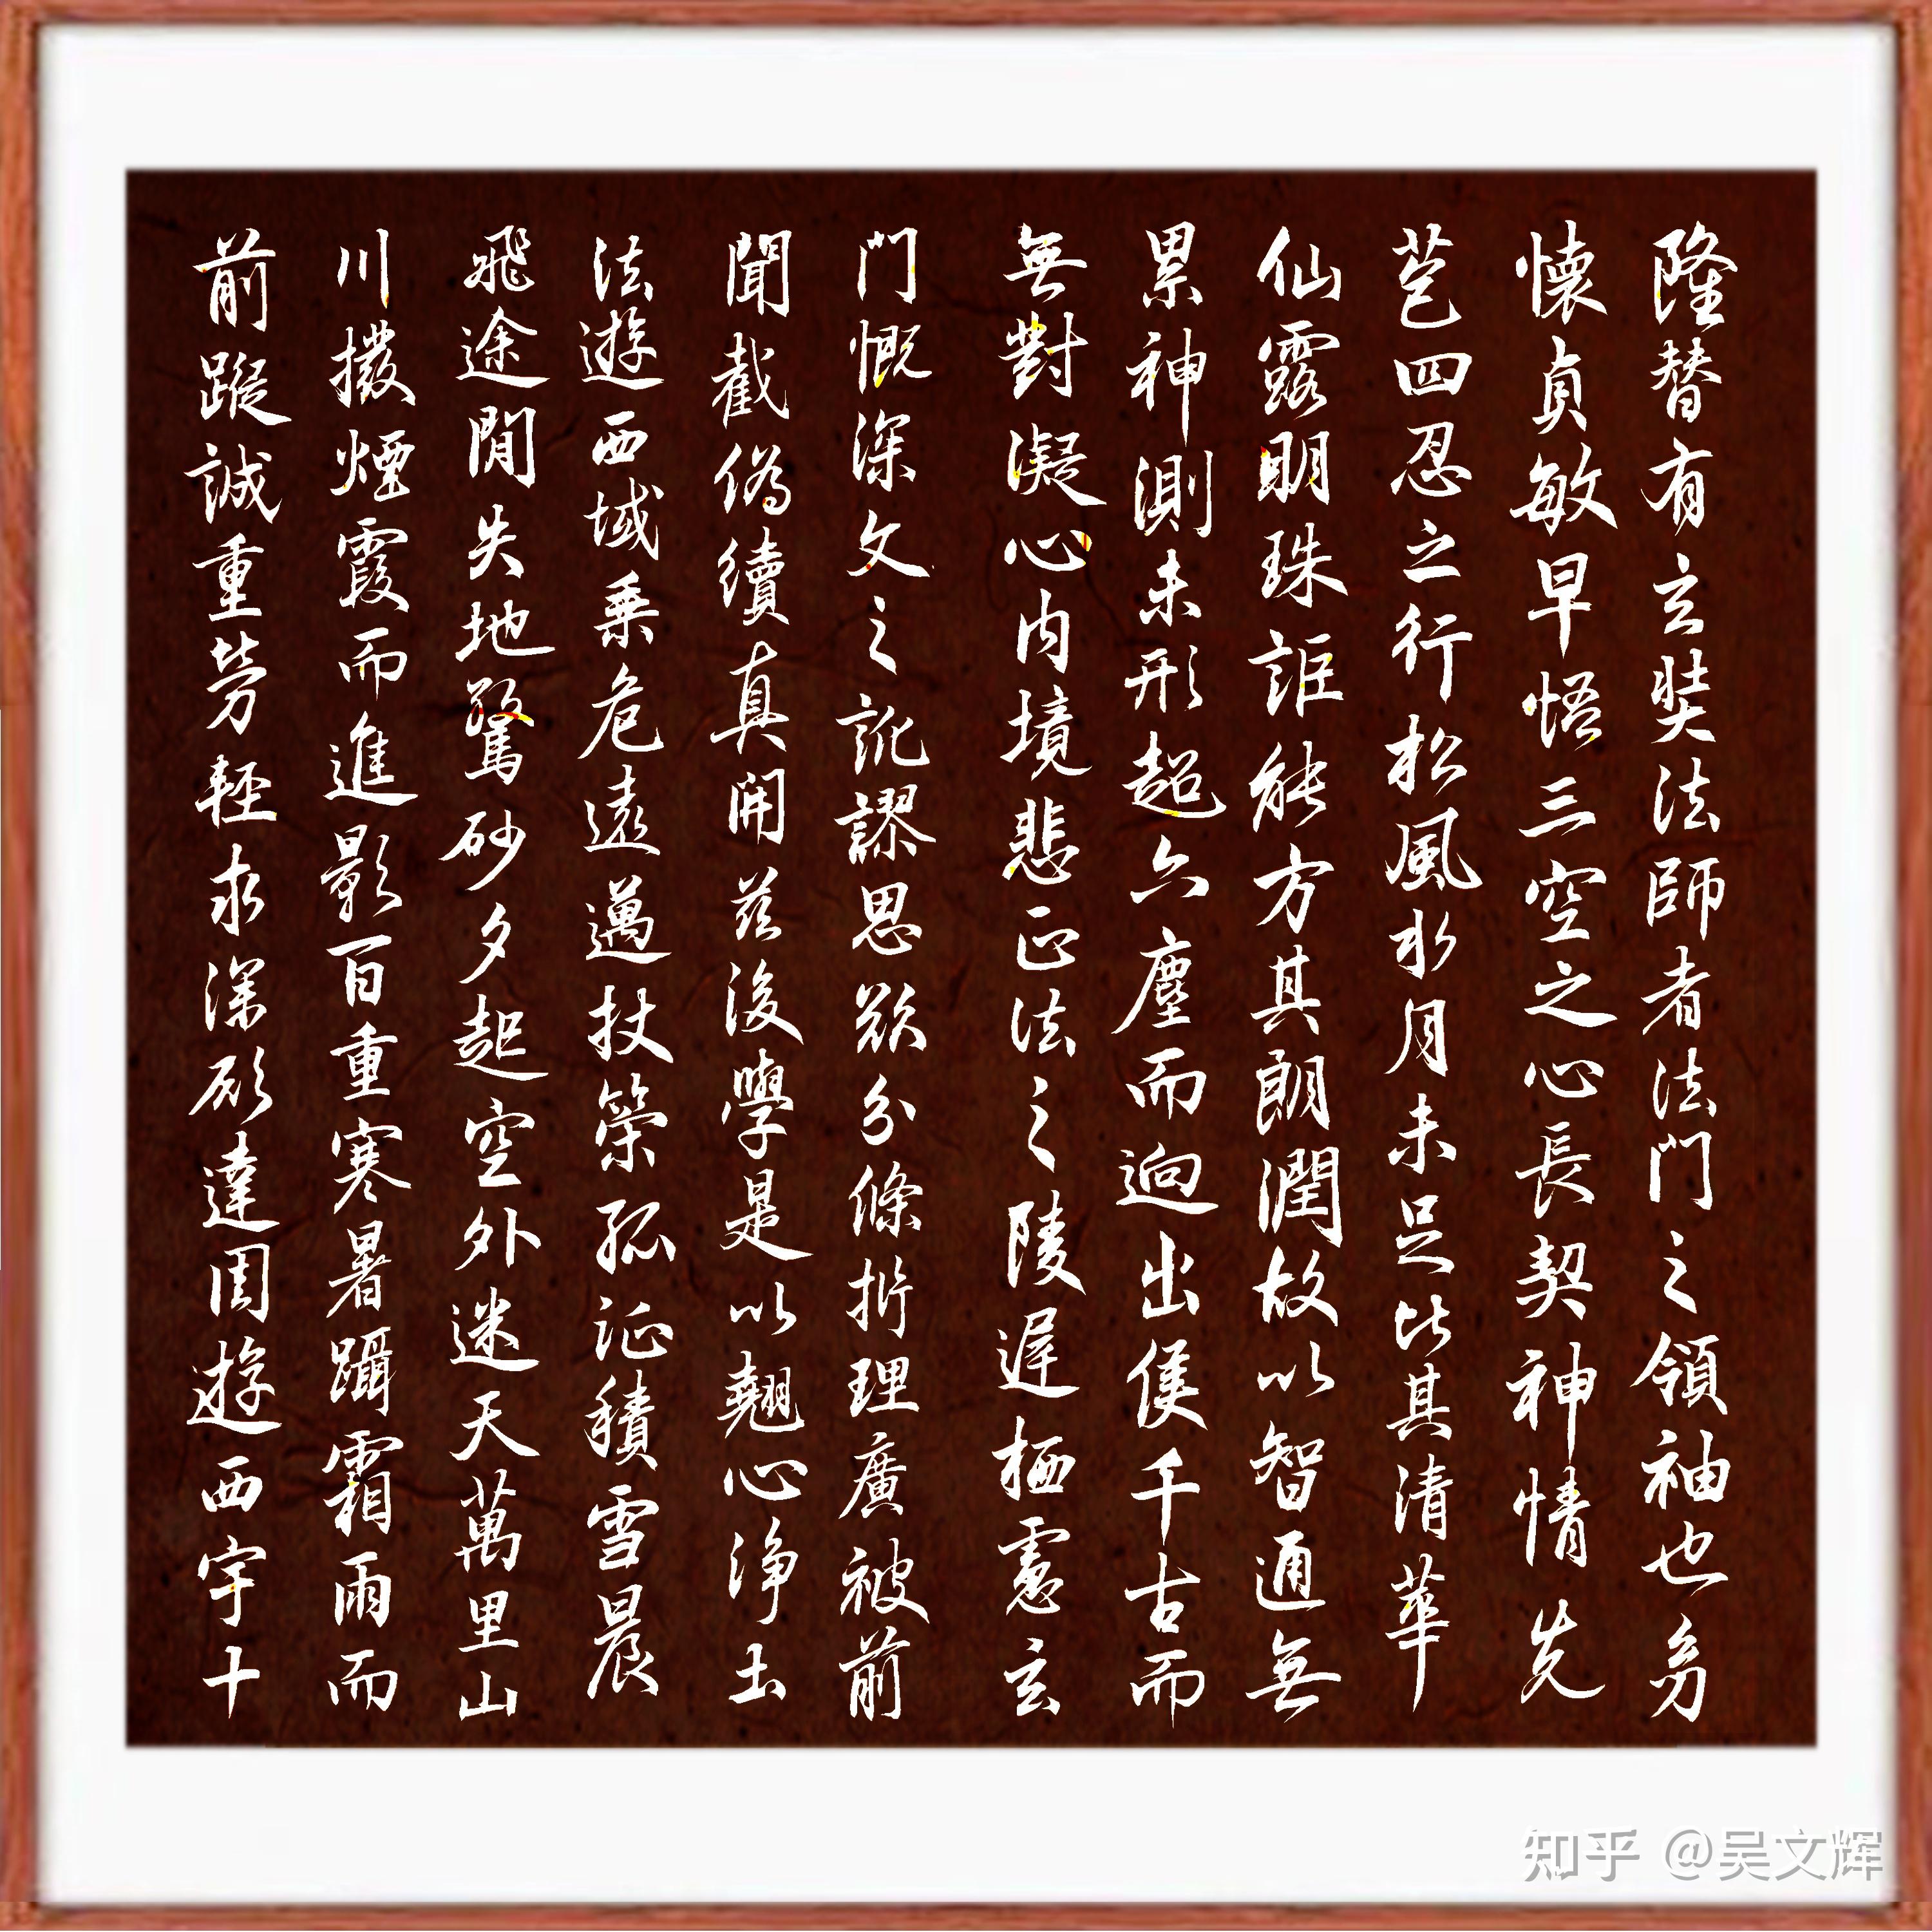 隆替有玄奘法師者法門之領袖也㓜
懷貞敏早悟三空之心長契神情先
苞四忍之行松風水月未足比其清華
仙露明珠詎能方其朗潤故以智通無
累神測未形超六塵而迥出隻千古而
無對凝心內境悲正法之陵遲栖慮玄
門慨深文之訛謬思欲分條析理廣被前
聞截偽續真開茲後學是以翹心淨土
法遊西域乗危遠邁杖策孤征積雪晨
飛途閒失地驚砂夕起空外迷天萬里山
川撥煙霞而進影百重寒暑躡霜雨而
前蹤誠重勞輕求深願達周遊西宇十
知乎 @吴文辉